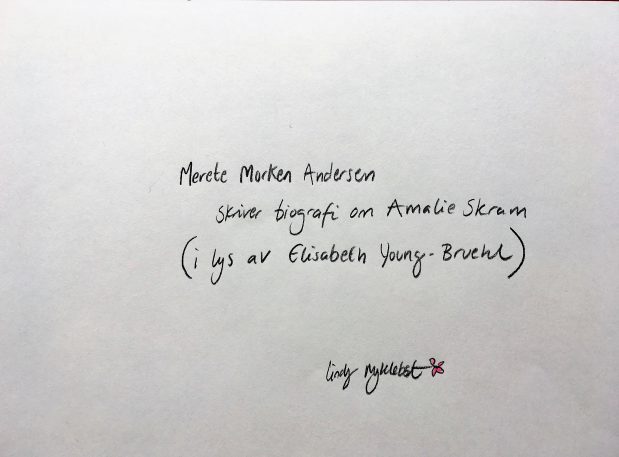 Merete Morken Andersen
skriver biografi om Amalie Skram
(i lys av Elisabeth Young-Bruehl)
lindy nyklebst